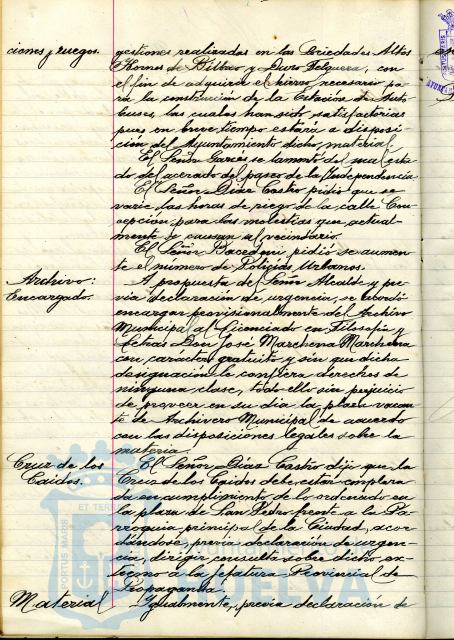 ciones y ruegos.
gestiones realizadas en las Sociedades Altos
Hornos de Bilbao y Duro Felguera, con
el fin de adquirir el hierro necesario pa
ra la construcción de la Estación de Auto
buses, las cuales han sido satisfactorias
pues en breve tiempo estará a disposi
ción del Ayuntamiento dicho material.
El Señor Garcés se lamentó del mal esta
do del acerado del paseo de la Independencia.
El Señor Díaz Castro pidió que se
varíe las horas de riego de la calle Con
cepción para las molestias que actual-
mente se causan al vecindario.
El Señor pidió se aumen
te el número de Policías Urbanos.
Archivo:
Encargado.
A propuesta del Señor Alcalde y pre
via declaración de urgencia, se acordó
encargar provisionalmente del Archivo
Municipal al Licenciado en Filosofía y
Letras Don José Marchena Marchena
con carácter gratuito y sin que dicha
designación le confiera derechos de
ninguna clase, todo ello sin perjuicio
de proveer en su día la plaza vacan
te de Archivero Municipal de acuerdo
con las disposiciones legales sobre la
materia.
Cruz de los
Caidos.
El Señor Díaz Castro dijo que la
Cruz de los Caidos debe estar emplaza
da en cumplimiento de lo ordenado en
la plaza de San Pedro frente a la Pa
rroquia principal de la Ciudad, acor
dándose, previa declaración de urgen-
cia, dirigir consulta sobre dicho ex-
tremo a la Jefatura Provincial de
Propaganda.
Material
Igualmente, previa declaración de